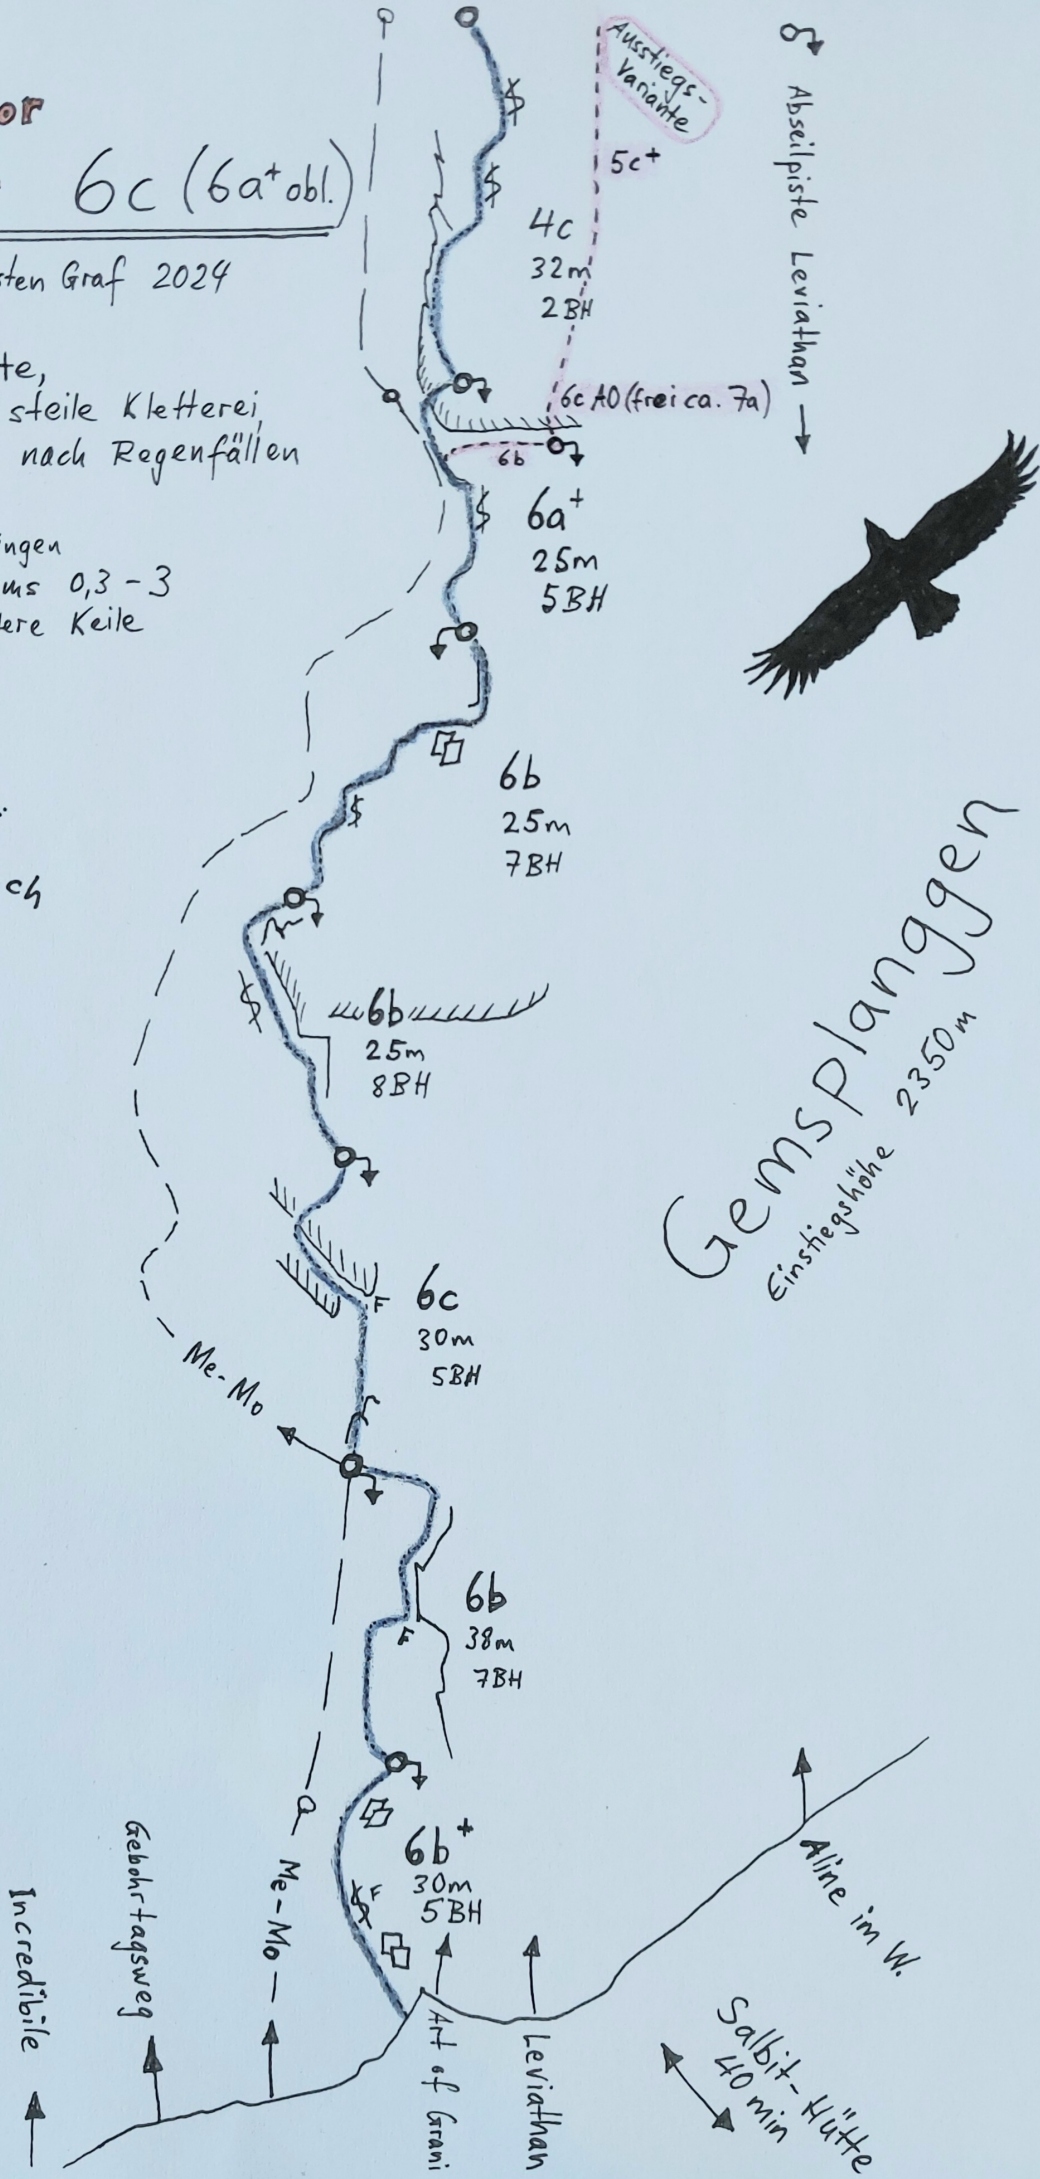 or
6c (6a+ obl.)
sten Graf 2024
te,
steile Kletterei,
nach Regenfällen
ingen
ms 0,3 - 3
ere Keile
ch
Ausstiegs-
Variante
5c+
4c
32m
2BH
6c A0 (frei ca. 7a)
6b
6a+
25m
5BH
6b
25m
7BH
6b
25m
8BH
6c
30m
5BH
F
Me-Mo
6b
38m
7BH
F
6b+
30m
5BH
F
Abseilpiste Leviathan
Gemsplanggen
Einstiegshöhe 2350m
Incredibile
Gebohrtagsweg
Me-Mo
Art of Grani
Leviathan
Aline im W.
Salbit-Hütte
40 min